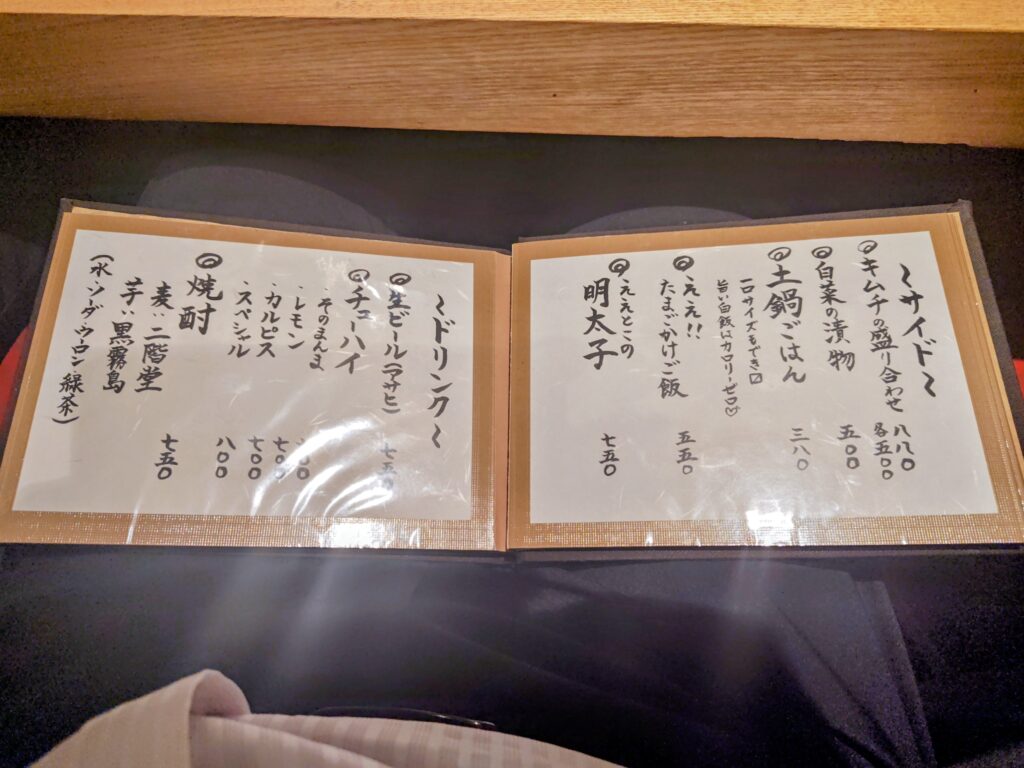 〜サイド〜
キムチの盛り合わせ 八八〇
各五〇〇
白菜の漬物 五〇〇
土鍋ごはん 三八〇
一口サイズもできます
旨い白飯はカロリーゼロ♡
ええ!!
たまごかけご飯 五五〇
ええとこの
明太子 七五〇
〜ドリンク〜
生ビール(アサヒ) 七五〇
チューハイ
・そのまんま
・レモン 七〇〇
・カルピス 七〇〇
・スペシャル 八〇〇
焼酎
麦:二階堂 七五〇
芋:黒霧島
(水・ソーダ・ウーロン・緑茶)